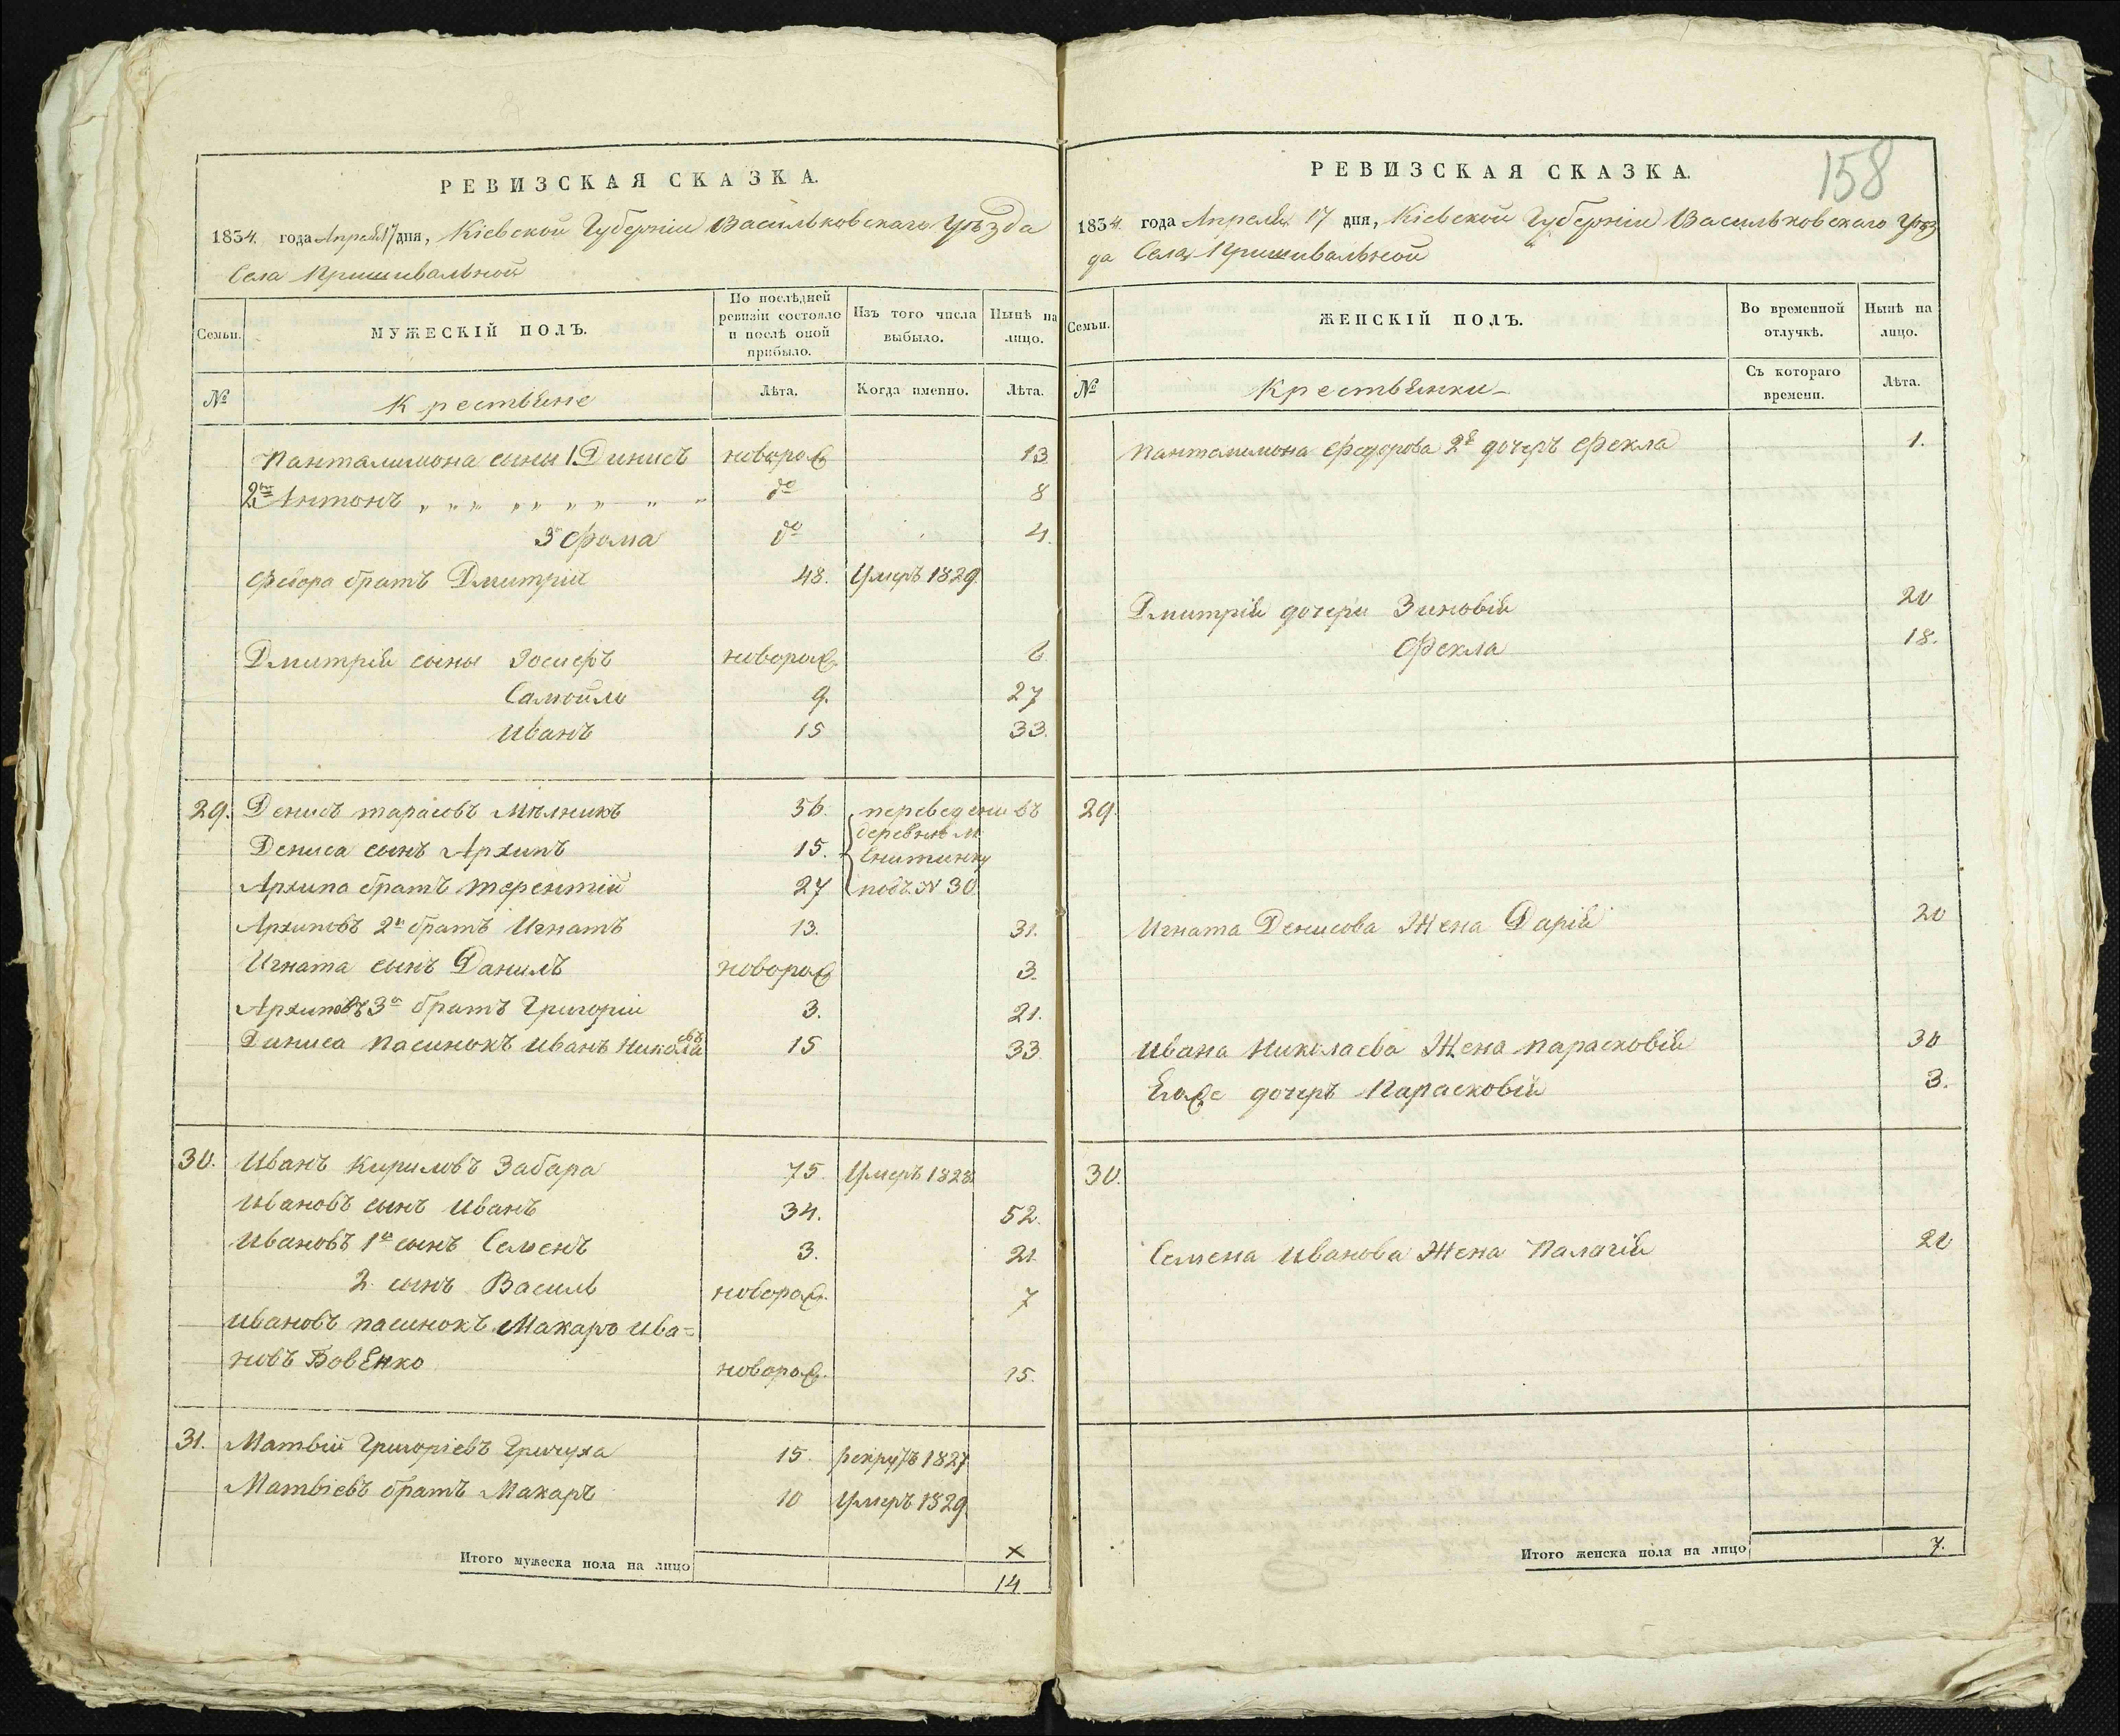 РЕВИЗСКАЯ СКАЗКА.
1834. года Апреля 17 дня, Кіевской Губерніи Васильковскаго Уѣзда
Села Пришивальной
Семьи.
МУЖЕСКІЙ ПОЛЪ.
По послѣдней ревизіи состояло и послѣ оной прибыло.
Изъ того числа выбыло.
Нынѣ на лицо.
№
Крестьяне
Лѣта.
Когда именно.
Лѣта.
Панталимона сыны 1 Динисъ новорож 13
2й Антонъ " " " " " " " " " до 8
3 Фома до 4.
Федора братъ Дмитрій 48. Умеръ 1829.
Дмитрій сыны Іосифъ новорож. 6
Самойло 9. 27
Иванъ 15 33.
29. Денисъ Тарасовъ Мѣлникъ 56. переведени въ
деревню М.
Дениса сынъ Архипъ 15. Снитинку
Архипа братъ Терентій 27 подъ N 30
Архиповъ 2й братъ Игнатъ 13. 31.
Игната сынъ Данилъ новорож 3.
Архиповъ 3й братъ Григорій 3. 21.
Диниса пасинокъ Иванъ Николаевъ 15 33.
30. Иванъ Кириловъ Забара 75. Умеръ 1828.
Ивановъ сынъ Иванъ 34. 52.
Ивановъ 1й сынъ Семенъ 3. 21
2 сынъ Василь новорож. 7
Ивановъ пасинокъ Макаръ Ива=
новъ Бовенко новорож. 15.
31. Матвій Григоріевъ Гричуха 15. рекрутъ 1827
Матвіевъ братъ Макаръ 10 Умеръ 1829
Итого мужеска пола на лицо
×
14
158
РЕВИЗСКАЯ СКАЗКА.
1834. года Апреля 17 дня, Кіевской Губерніи Васильковскаго Уѣз
да Села Пришивальной
Семьи.
ЖЕНСКІЙ ПОЛЪ.
Во временной отлучкѣ.
Нынѣ на лицо.
№
Крестьянки
Съ котораго времени.
Лѣта.
Панталимона Федорова 2я дочеръ Фекла 1.
Дмитрій дочери Зиновій 20
Фекла 18.
29
Игната Денисова Жена Дарій 20
Ивана Николаева Жена Парасковій 30
Егоже дочеръ Парасковій 3.
30.
Семена Иванова Жена Палагій 20
Итого женска пола на лицо 7.